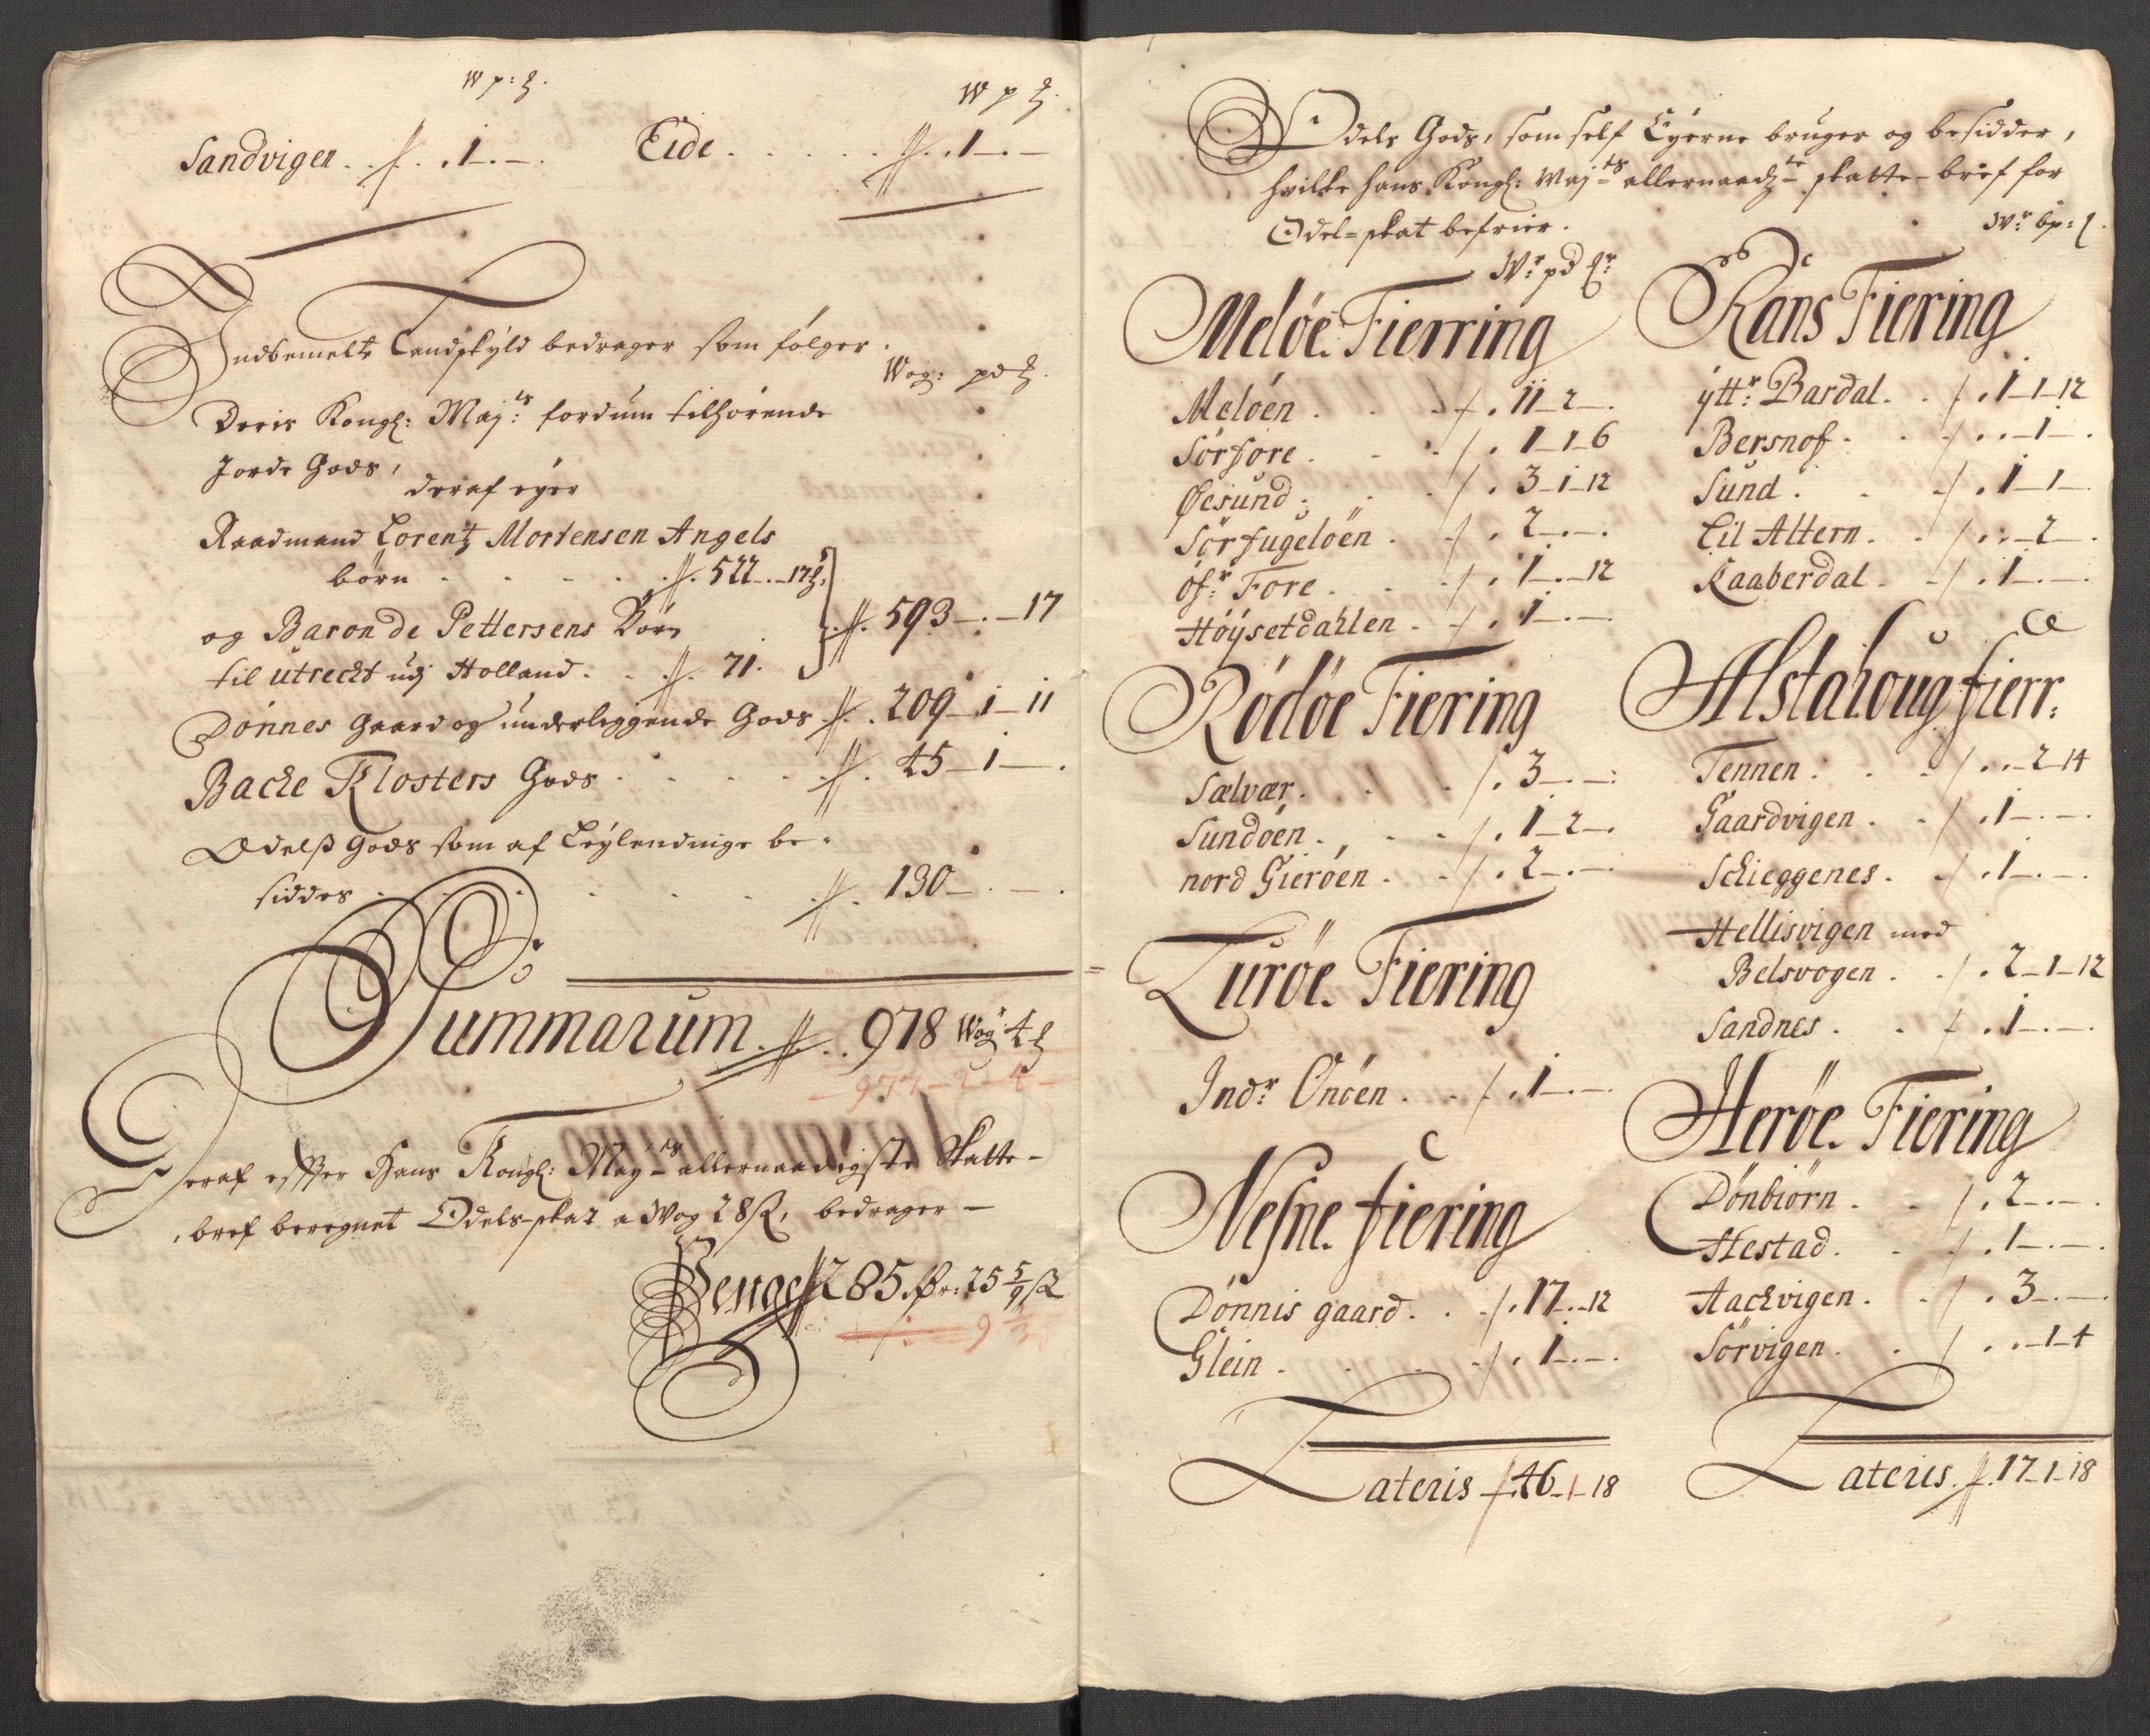 W p: ℔.
W p ℔.
Sandvigen . . 1. –.
Eide . . . . . . 1 –. –
Indbemelte Landskyld bedrager som følger.
Wog: pd ℔.
Deris Kongl: Maj:ts fordum tilhørende
Jorde Gods,
deraf eyer
Raadmand Lorentz Mortensen Angels
børn . . . . . 522 . – 17 ℔.
og Baron de Pettersens Børn
til Utrecht udj Holland . . . 71.
593 –. – 17
Dønnes Gaard og underliggende Gods . 209 – 1 – 11
Backe Klosters Gods . . . . . 45 – 1 –.
Odelss Gods som af Leylendinge be-
siddes . . . . . . 130 –. –.
Summarum . . . 978 Wog 4 ℔
977 – 2 – 4 –
Heraf effter Hans Kongl: May:ts allernaadigste Skatte-
bref beregnet Odels-skat a Wog 28 ß, bedrager –
Penge 285 Dr: 25 5/9 ß
9
Odels Gods, som self Eyerne bruger og besidder,
hvilke hans Kongl: Maj:ts allernaadgste skatte-bref for
Odel-skat befrier.
Wr: bp: ℔.
Wr: pd ℔r:
Meløe Fierring
Meløen . . . . 11 – 2 –.
Sørfore . . . . 1 – 1 – 6
Øesund . . . . 3 – 1 – 12
Sørfugeløen . . . 2 –. –.
øfr: Fore . . . . 1 –. – 12
Høysetdahlen . . . 1 –. –
Rødøe Fiering
Sælvær . . . . 3 –. –.
Sundøen . . . . 1 – 2 –.
nord Gierøen . . . 2 –. –
Lurøe Fiering
Indr Onøen . . . 1 –. –
Nesne fiering
Dønnis gaard . . . 17 . – 12
Glein . . . . . 1 –. –.
Lateris – 46 – 1 – 18
Rans Fiering
ytt:r Bardal . . . 1 – 1 – 12
Bersnos . . . . . – 1 –.
Sund . . . . 1 – 1 –
Lil Altern . . . . – 2 –.
Kaaberdal . . . 1 –. –
Alstahoug fierr:
Tennen . . . . . – 2 – 14
Gaardvigen . . . 1 –. –.
Schieggenes . . . 1 –. –.
Hellisvigen med
Belsvogen . . . 2 – 1 – 12
Sandnes . . . . 1 –. –
Herøe Fiering
Dønbiørn . . . . 2 –. –.
Hestad . . . . 1 –. –.
Hachvigen . . . 3 –. –
Sørvigen . . . . – 1 – 4
Lateris . . 17 – 1 – 18